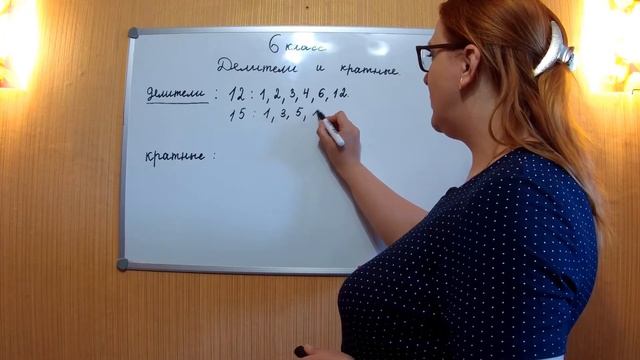 6 класс
Делители и кратные
делители : 12 : 1, 2, 3, 4, 6, 12.
15 : 1, 3, 5, 1
кратные :